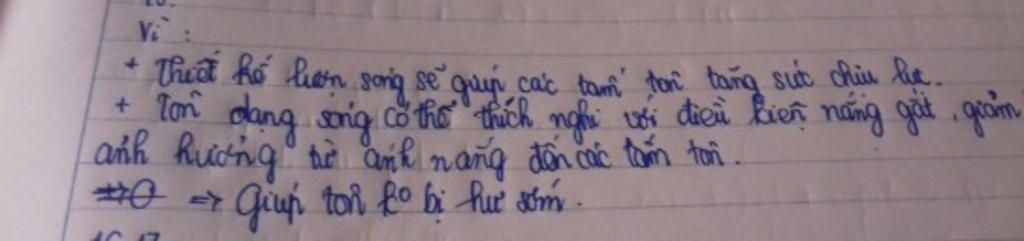 Vì:
+ Thiết kế lượn sóng sẽ giúp các tấm tôn tăng sức chịu lực.
+ Tôn dạng sóng có thể thích nghi với điều kiện nắng gắt, giảm
ảnh hưởng từ ánh nắng đến các tấm tôn.
=> Giúp tôn ko bị hư sớm.